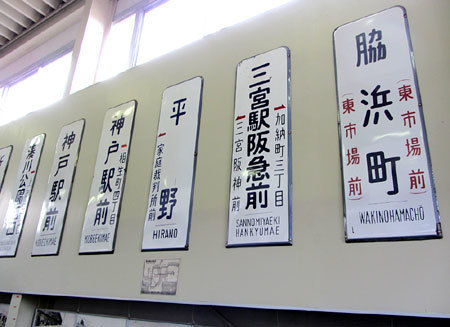 脇浜町
東市場前
東市場前
WAKINOHAMACHŌ
加納町三丁目
三宮駅阪急前
三宮阪神前
SANNOMIYAEKI
HANKYUMAE
平野
家庭裁判所前
HIRANO
相生町四丁目
神戸駅前
KOBEEKIMAE
神戸駅前
KOBEEKIMAE
湊川公園西口